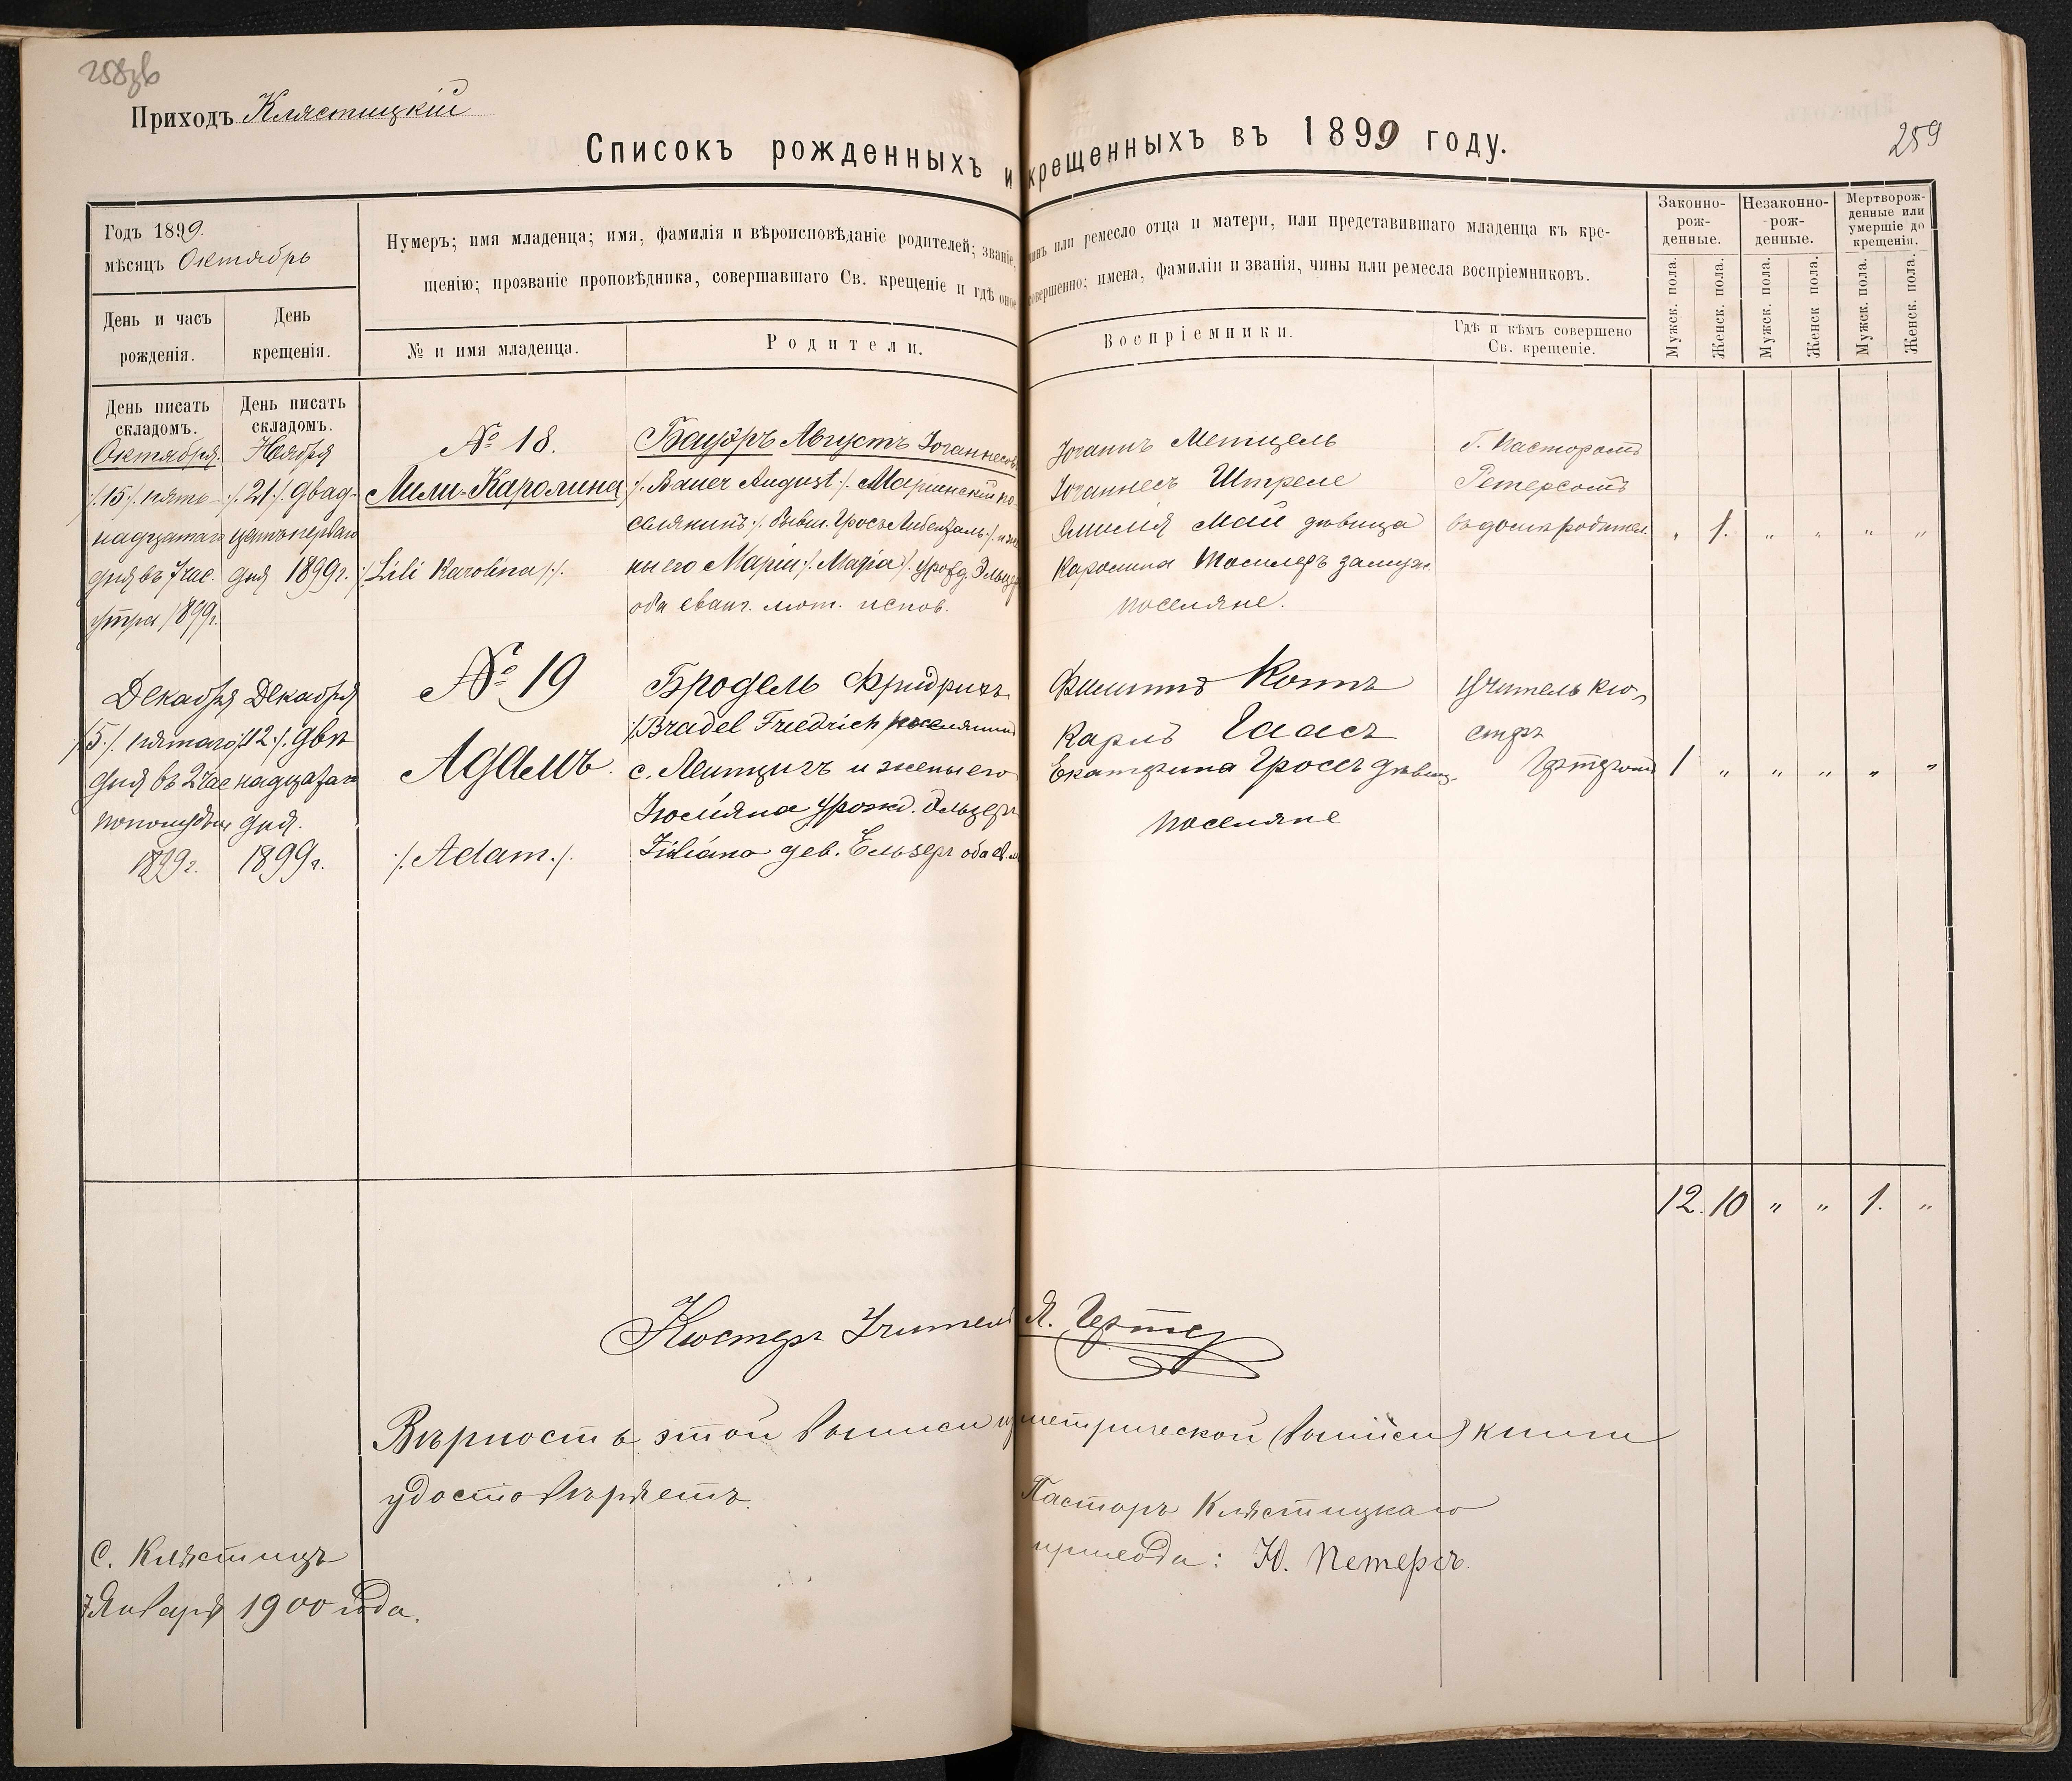 258об
259
Приходъ Клястицкій
Списокъ рожденныхъ и крещенныхъ въ 1899 году.
Годъ 1899.
мѣсяцъ Октябрь
День и часъ
рожденія.
День
крещенія.
Нумеръ; имя младенца; имя, фамилія и вѣроисповѣданіе родителей; званіе, чинъ или ремесло отца и матери, или представившаго младенца къ кре-
щенію; прозваніе проповѣдника, совершавшаго Св. крещеніе и гдѣ оное совершенно; имена, фамиліи и званія, чины или ремесла воспріемниковъ.
№ и имя младенца.
Родители.
Воспріемники.
Гдѣ и кѣмъ совершено
Св. крещеніе.
Законно-
рож-
денные.
Незаконно-
рож-
денные.
Мертворож-
денные или
умершіе до
крещенія.
Мужск. пола.
Женск. пола.
Мужск. пола.
Женск пола.
Мужск. пола.
Женск. пола.
День писать
складомъ.
Октября
/.15./. пять-
надцатаго
дня въ 7 час.
утра 1899г.
День писать
складомъ.
Ноября
/.21./. двад-
цать перваго
дня 1899г.
№ 18.
Лили-Каролина
/. Lili Karolina /.
Бауэръ Августъ Іоганнесовъ
/. Bauer August ./. Маріинскій по-
селянинъ ./. бывш. Гросъ Либенталь ./. и же
ны его Маріи /. Maria /. урожд. Эльцер
оба еванг. лют. испов.
Іоганъ Метцель
Іоганнесъ Штреле
Эмилія Май дѣвица
Каролина замуж.
поселяне.
Г. Пасторомъ
Петерсомъ
въ домѣ родител.
„ 1. „ „ „ „
Декабря
/5./. пятаго
дня въ 2 час
пополудни
1899г.
Декабря
/.12./. двѣ
надцатаго
дня.
1899г.
№ 19
Адамъ.
/. Adam. /.
Бродель Фридрихъ
/. Bradel Friedrich / поселянинъ
с. Лейпцигъ и жены его
Юліяна урожд. Эльцеръ
Juliana дев. Ельзеръ оба ев. л
Филиппъ Коппъ
Карлъ Гаасъ
Екатерина Гроссъ дѣвиц.
поселяне
Учитель кю-
стеръ
1 „ „ „ „ „
12. 10 „ „ 1. „
Кюстеръ Учитель Я.
Вѣрность этой выписи изъ метрической (выписи) книги
удостовѣряетъ.
Пасторъ Клястицкаго
прихода: Ю. Петерсъ.
С. Клястицъ
7 Января 1900 года.